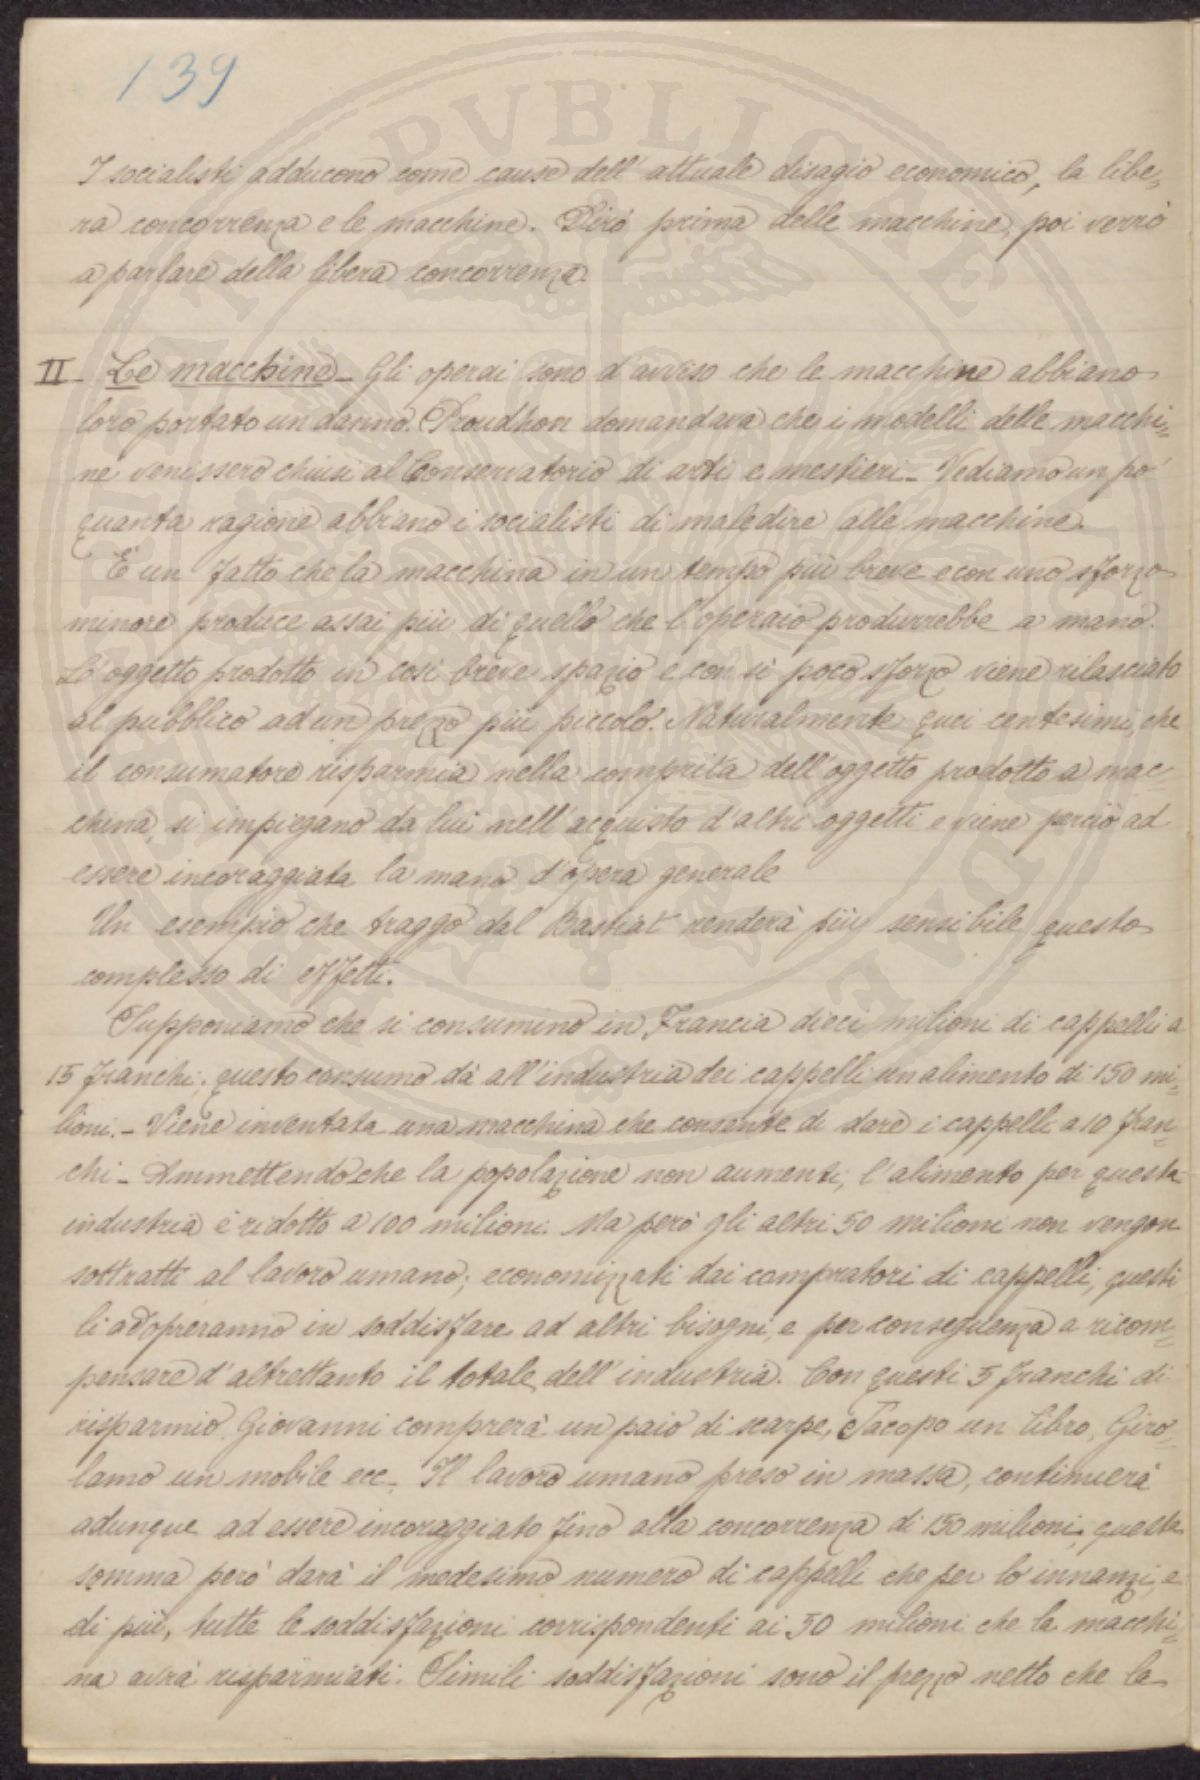 139
I socialisti adducono come cause dell'attuale disagio economico, la libe-
ra concorrenza e le macchine. Dirò prima delle macchine, poi verrò
a parlare della libera concorrenza.
II - Le macchine - Gli operai sono d'avviso che le macchine abbiano
loro portato un danno. Proudhon domandava che i modelli delle macchi=
ne venissero chiusi al Conservatorio di arti e mestieri - Vediamo un po'
quanta ragione abbiano i socialisti di maledire alle macchine.
È un fatto che la macchina in un tempo più breve e con uno sforzo
minore produce assai più di quello che l'operaio produrrebbe a mano.
L'oggetto prodotto in così breve spazio e con sì poco sforzo viene rilasciato
al pubblico ad un prezzo più piccolo. Naturalmente quei centesimi, che
il consumatore risparmia nella comprita dell'oggetto prodotto a mac-
china, si impiegano da lui nell'acquisto d'altri oggetti e viene perciò ad
essere incoraggiata la mano d'opera generale
Un esempio che traggo dal Bastiat renderà più sensibile questo
complesso di effetti.
Supponiamo che si consumino in Francia dieci milioni di cappelli a
15 franchi; questo consumo dà all'industria dei cappelli un alimento di 150 mi=
lioni. - Viene inventata una macchina che consente di dare i cappelli a 10 fran=
chi - Ammettendo che la popolazione non aumenti, l'alimento per questa
industria è ridotto a 100 milioni. Ma però gli altri 50 milioni non vengon
sottratti al lavoro umano; economizzati dai compratori di cappelli, questi
li adopreranno in soddisfare ad altri bisogni, e per conseguenza a ricom=
pensare d'altrettanto il totale dell'industria. Con questi 5 franchi di
risparmio, Giovanni comprerà un paio di scarpe, Jacopo un libro, Giro=
lamo un mobile ecc. Il lavoro umano preso in massa, continuerà
adunque ad essere incoraggiato fino alla concorrenza di 150 milioni; questa
somma però darà il medesimo numero di cappelli che per lo innanzi, e
di più, tutte le soddisfazioni corrispondenti ai 50 milioni che la macchi=
na avrà risparmiati. Simili soddisfazioni sono il prezzo netto che la